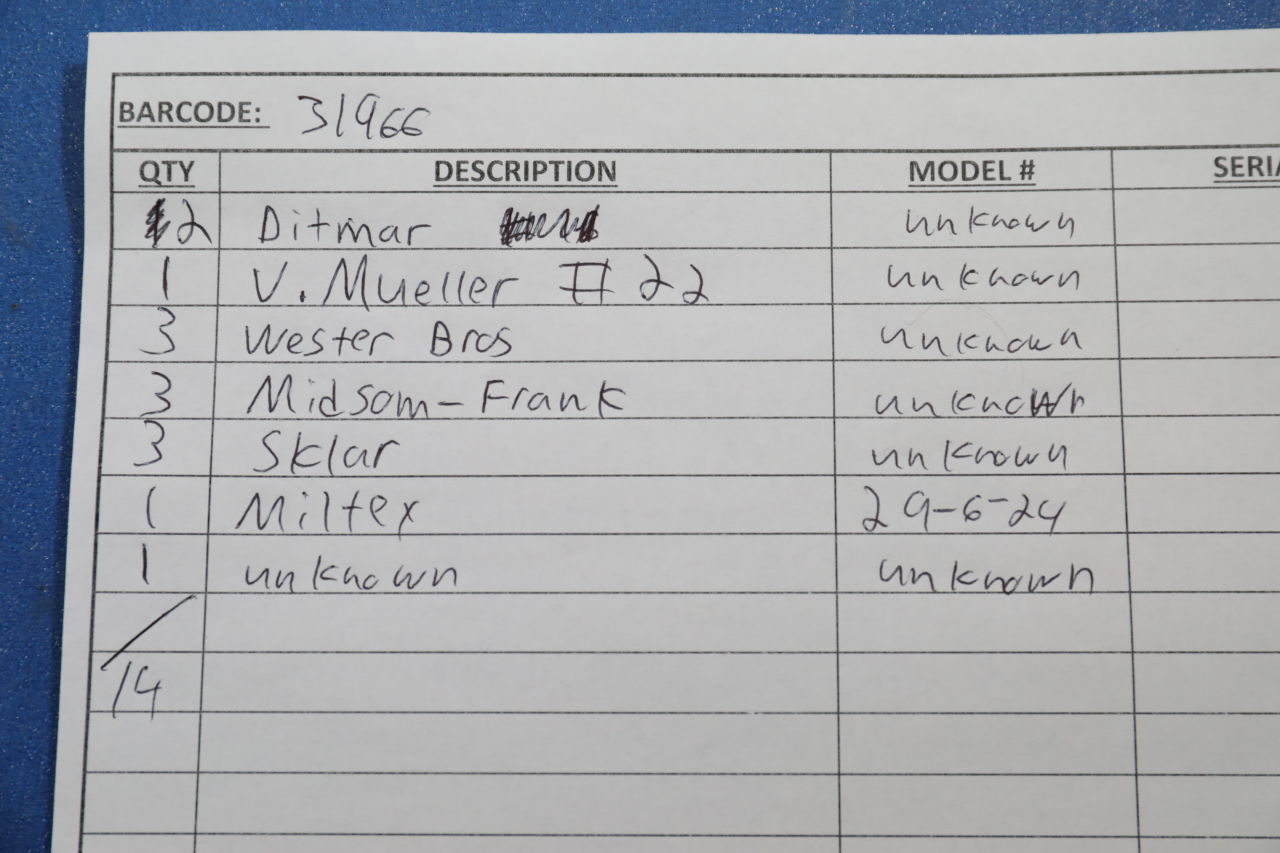 BARCODE: 31966
QTY DESCRIPTION MODEL #
2 Ditmar unknown
1 V. Mueller # 22 unknown
3 Wester Bros unknown
3 Midsom-Frank unknown
3 Sklar unknown
1 Miltex 29-6-24
1 unknown unknown
/14